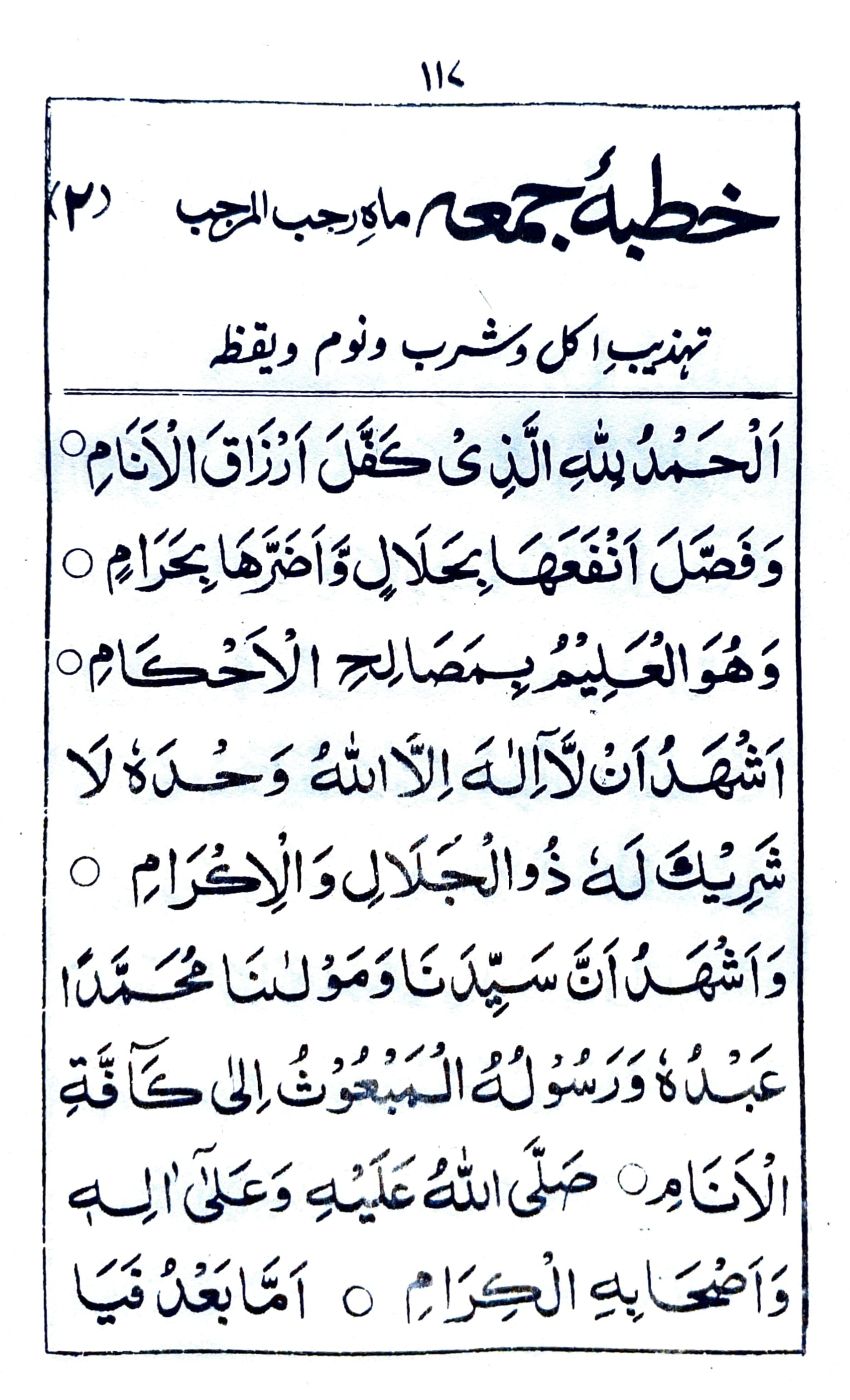 ۱۱۷
خطبۂ جمعہ ماہِ رجب المرجب (۲)
تہذیبِ اکل وشرب ونوم ویقظہ
اَلْحَمْدُ لِلّٰهِ الَّذِیْ کَفَّلَ اَرْزَاقَ الْاَنَامِ ○
وَفَصَّلَ اَنْفَعَهَا بِحَلَالٍ وَّاَضَرَّهَا بِحَرَامٍ ○
وَهُوَ الْعَلِيْمُ بِمَصَالِحِ الْاَحْکَامِ ○
اَشْهَدُ اَنْ لَّآ اِلٰهَ اِلَّا اللّٰهُ وَحْدَهٗ لَا
شَرِيْكَ لَهٗ ذُو الْجَلَالِ وَالْاِکْرَامِ ○
وَاَشْهَدُ اَنَّ سَيِّدَنَا وَمَوْلٰىنَا مُحَمَّدًا
عَبْدُهٗ وَرَسُوْلُهُ الْمَبْعُوْثُ اِلٰی کَآفَّةِ
الْاَنَامِ ○ صَلَّی اللّٰهُ عَلَيْهِ وَعَلٰٓی اٰلِهٖ
وَاَصْحَابِهِ الْکِرَامِ ○ اَمَّا بَعْدُ فَيَا